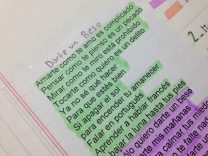 Darte un beso
Amarte como te amo es complicado
Pensar como te pienso es un pecado
Mirar como te miro esta prohibido
Tocarte como quiero es un delito
Ya no sé qué hacer
Para que estés bien
Si apagar el sol
para encender tu amanecer
Falar en portugués
Aprender a hablar francés
bajar la luna hasta tus pies
quiero darte un beso
mis mañanas